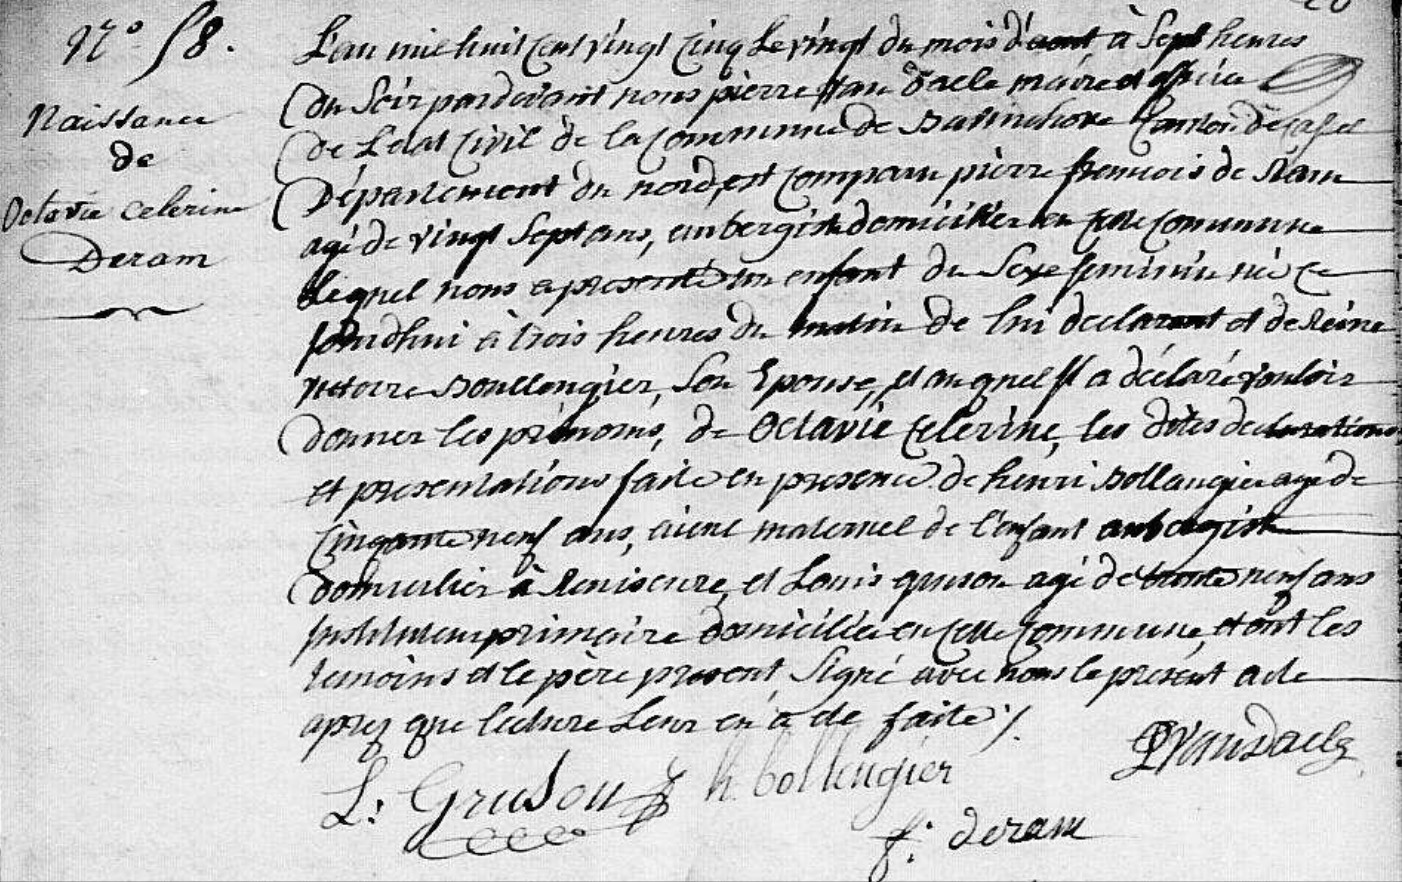 N.º 58.
Naissance
de
Octavie Celerine
Deram
L'an mil huit cent vingt cinq le vingt du mois d'aout à sept heures
du soir pardevant nous pierre Van Daele maire et officier
de L'etat Civil de la Commune de Bavinchove Canton de Cassel
Département du nord, est comparu pierre francois de Ram
agé de vingt sept ans, aubergiste domicilier en cette Commune
Lequel nous a presenté un enfant du Sexe feminin née ce
jourdhui à trois heures du matin de lui declarant et de Reine
Victoire Boullengier, son Epouse, et auquel il a déclaré vouloir
donner les prénoms, de Octavie Celerine, les dites declarations
et presentations faite en presence de henri Bollengier agé de
Cinqante neuf ans, aieul maternel de l'enfant aubergiste
domicilier à Renescure, et Louis gruson agé de trente neuf ans
Instituteur primaire domicilié en cette Commune, et ont les
temoins et le père present Signé avec nous le présent acte
aprez que lecture Leur en a éte faite ./.
L. Gruson h. bollengier PVandaele
f. deram